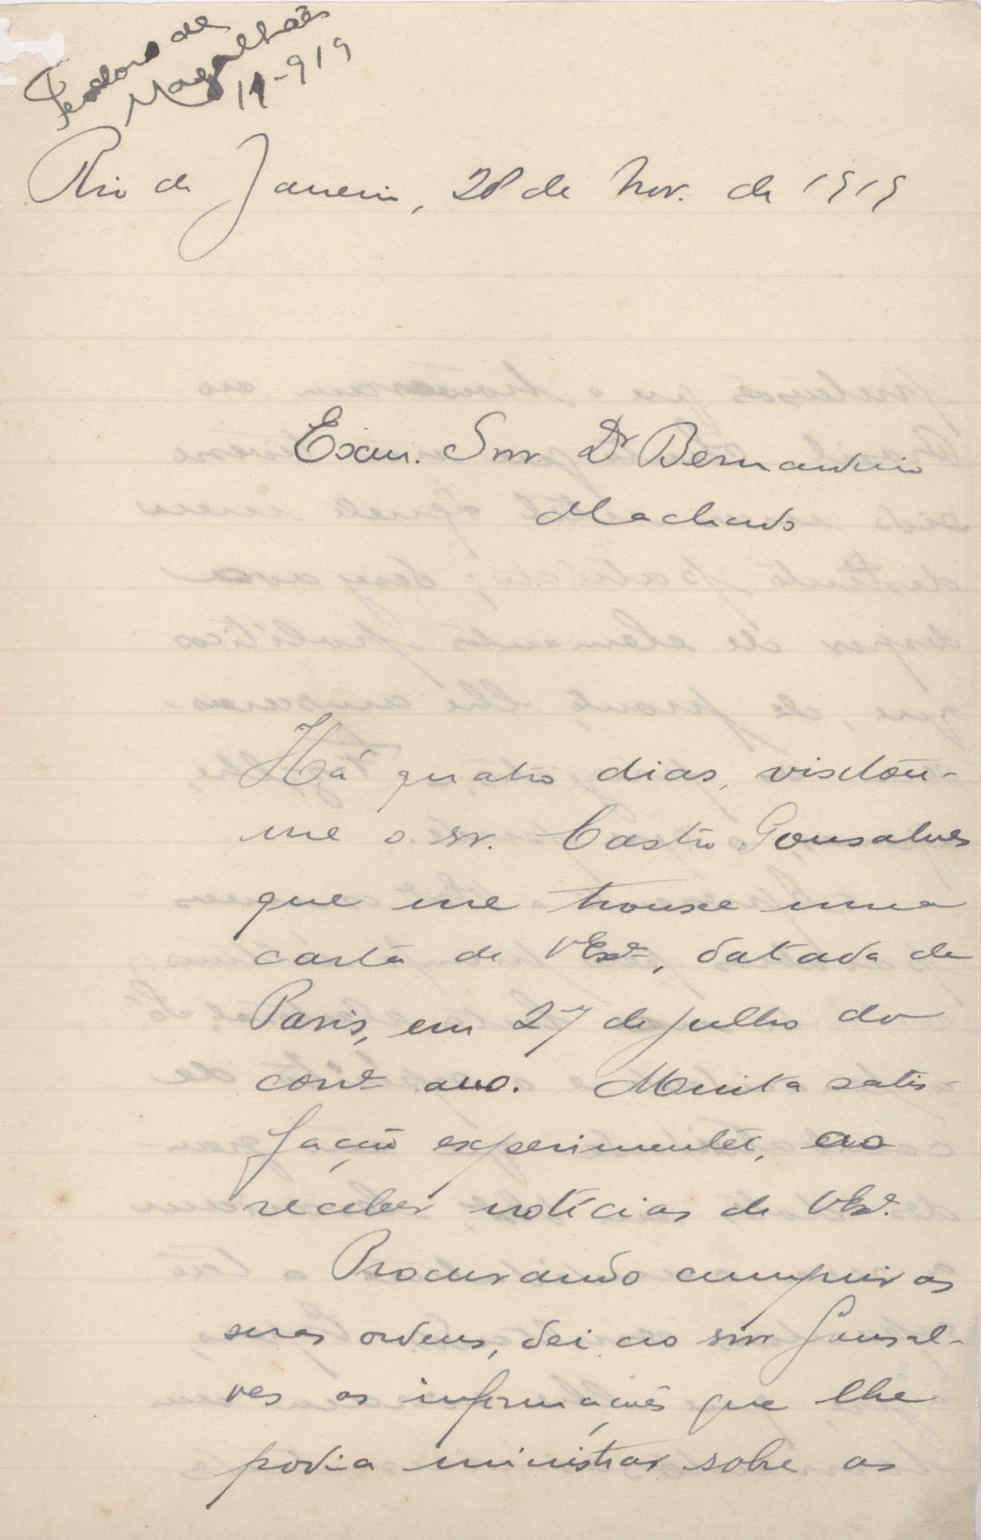 Teodoro de
Magalhães
11-919
Rio de Janeiro, 28 de Nov. de 1919
Exm. Snr. Dr Bernardino
Machado
Há quatro dias, visitou-
me o sr. Castro Gonsalves
que me trouxe uma
carta de V. Exª, datada de
Paris, em 27 de julho do
corrte ano. Muita satis-
fação experimentei, ao
receber notícias de V. Exª.
Procurando cumprir as
suas ordens, dei ao snr Gonsal-
ves as informações que lhe
podia ministrar sobre as